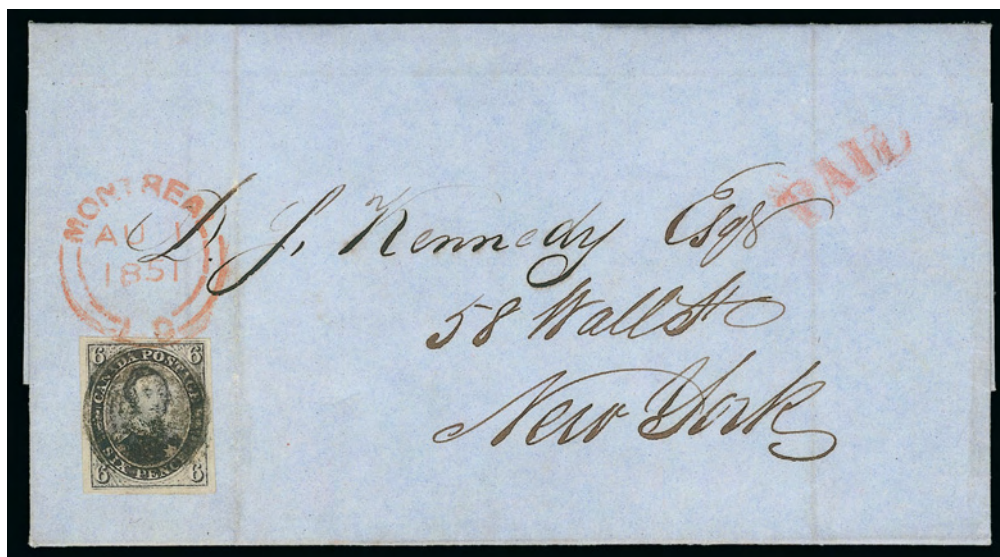 PAID
MONTREAL
AU 1
1851
L.C
D. J. Kennedy Esqr
58 Wall St
New York
6 6
CANADA POSTAGE
SIX PENCE
6 6